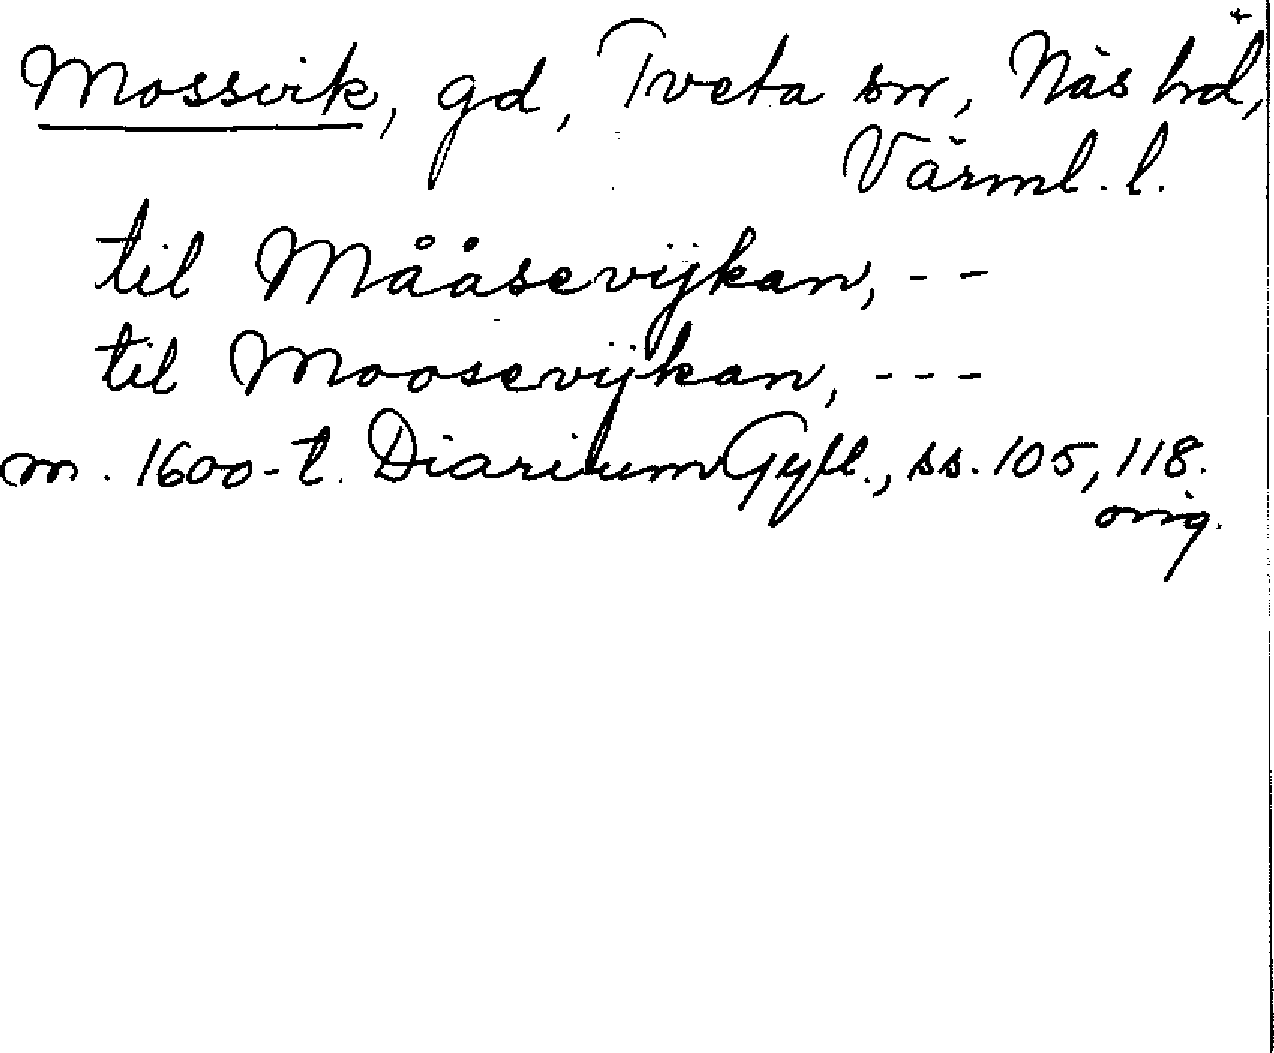 Mossvik, gd, Tveta sn, Näs hrd,
Värml. l.
til Mååsevijkan, - -
til Moosevijkan, - - -
m. 1600-t. Diarium Gyll., ss. 105, 118.
orig.